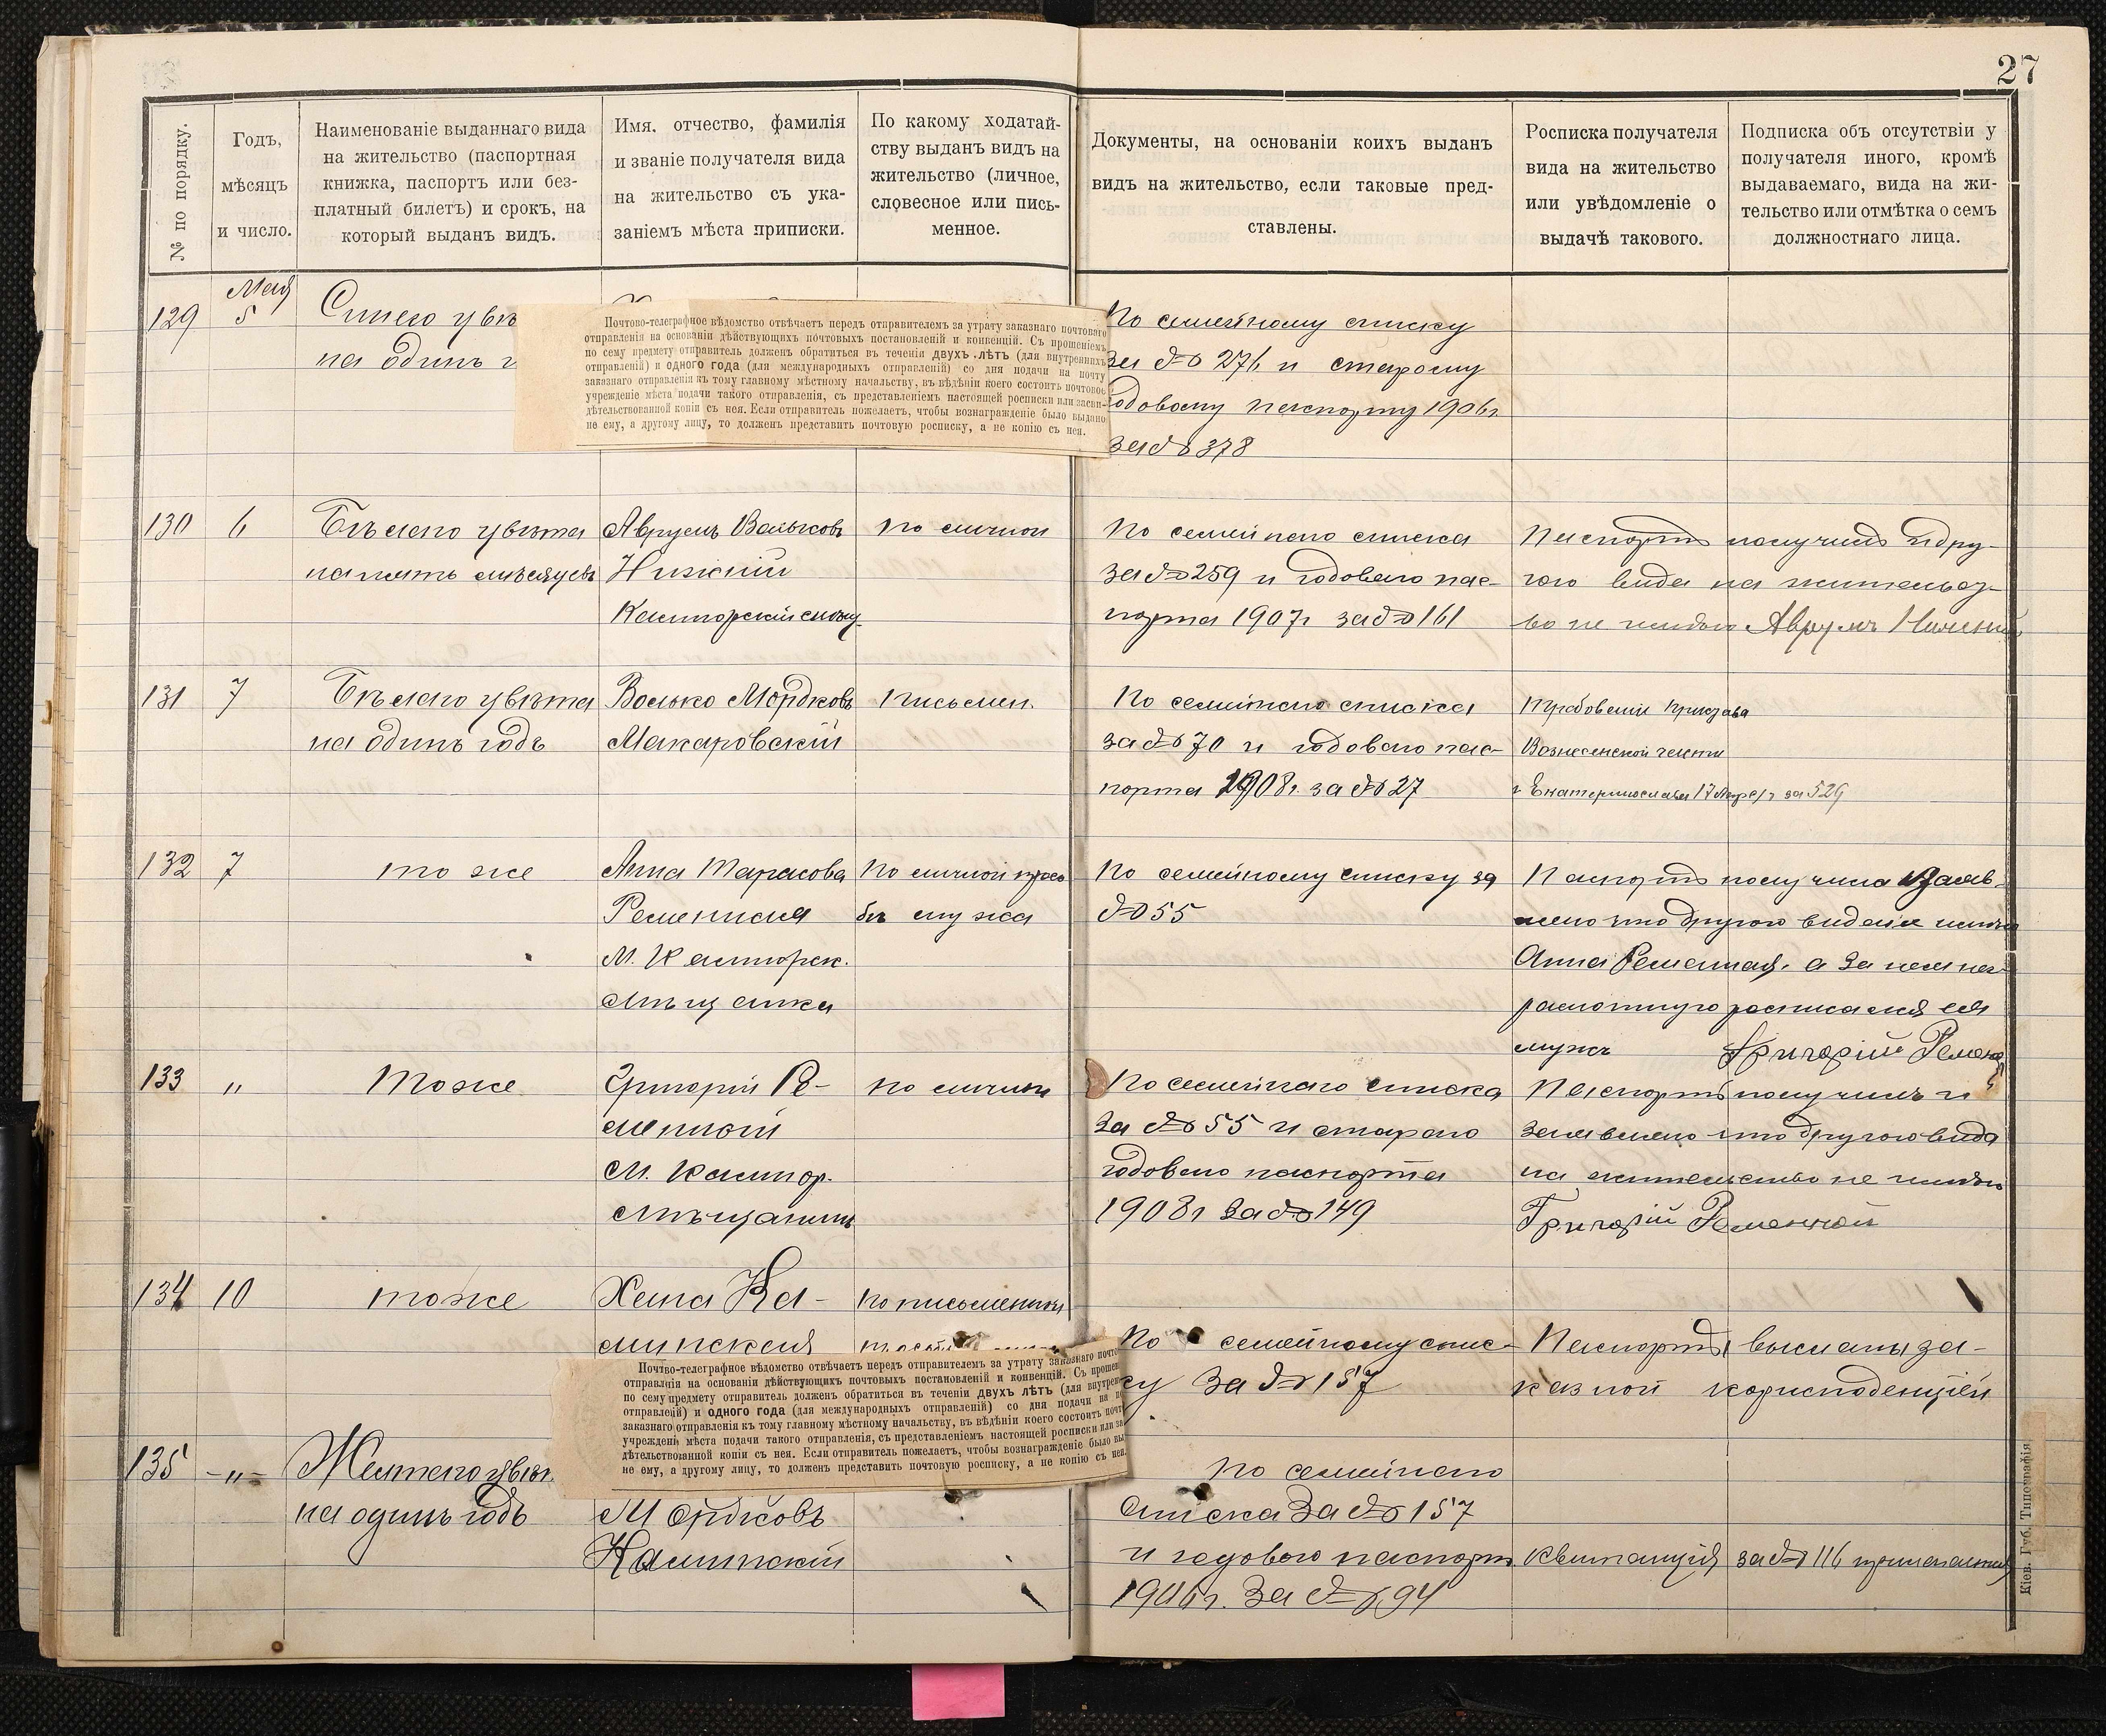 27
№ по порядку.
Годъ,
мѣсяцъ
и число.
Наименованіе выданнаго вида
на жительство (паспортная
книжка, паспортъ или без-
платный билетъ) и срокъ, на
который выданъ видъ.
Имя, отчество, фамилія
и званіе получателя вида
на жительство съ ука-
заніемъ мѣста приписки.
По какому ходатай-
ству выданъ видъ на
жительство (личное,
словесное или пись-
менное.
Документы, на основаніи коихъ выданъ
видъ на жительство, если таковые пред-
ставлены.
Росписка получателя
вида на жительство
или увѣдомленіе о
выдачѣ такового.
Подписка объ отсутствіи у
получателя иного, кромѣ
выдаваемаго, вида на жи-
тельство или отмѣтка о семъ
должностнаго лица.
129
Мая
5
Синего цвѣ
на одинъ г
Почтово-телеграфное вѣдомство отвѣчаетъ передъ отправителемъ за утрату заказнаго почтоваго
отправленія на основаніи дѣйствующихъ почтовыхъ постановленій и конвенцій. Съ прошеніемъ
по сему предмету отправитель долженъ обратиться въ теченіи двухъ лѣтъ (для внутреннихъ
отправленій) и одного года (для международныхъ отправленій) со дня подачи на почту
заказнаго отправленія къ тому главному мѣстному начальству, въ вѣдѣніи коего состоитъ почтовое
учрежденіе мѣста подачи такого отправленія, съ представленіемъ настоящей росписки или засви-
дѣтельствованной копіи съ нея. Если отправитель пожелаетъ, чтобы вознагражденіе было выдано
не ему, а другому лицу, то долженъ представить почтовую росписку, а не копію съ нея.
По семейному списку
за № 276 и старому
годовому паспорту 1906 г
за № 378
130
6
Бѣлаго цвѣта
на пять мѣсяцевъ
Аврумъ Вольковъ
Нижній
По личной
По семейнаго списка
за № 259 и годоваго пас-
порта 1907 г за № 161
Паспортъ получилъ и дру-
гого вида на жительст-
во не имѣю Аврумъ Нижній
131
7
Бѣлаго цвѣта
на одинъ годъ
Волько Мордковъ
Макаровскій
Письмен.
По семейнаго списка
за № 70 и годоваго пас-
порта 1908 г. за № 27
Вознесенской части
г Екатеринослава 17 Апр за 529
132
7
тоже
Анна Тарасова
Ременная
М. Канторск.
мѣщанка
По личной прось
бѣ мужа
По семейному списку за
№ 55
Паспортъ получила и заяв-
ляю что другого вида не имѣю
Анна Ременная, а за нея не-
грамотную росписался ея
мужъ Григорій Ременой
133
"
Тоже
Григорій Ре-
менной
М. Кантор.
мѣщанинъ
По личной
По семейнаго списка
за № 55 и стараго
годоваго паспорта
1908 г за № 149
Паспортъ получилъ и
заявляю что другого вида
на жительство не имѣю
Григорій Ременной
134
10
тоже
Хана Ка-
минская
По письменной
Почтово-телеграфное вѣдомство отвѣчаетъ передъ отправителемъ за утрату заказнаго почто
отправленія на основаніи дѣйствующихъ почтовыхъ постановленій и конвенцій. Съ прошен
по сему предмету отправитель долженъ обратиться въ теченіи двухъ лѣтъ (для внутрен
отправленій) и одного года (для международныхъ отправленій) со дня подачи на по
заказнаго отправленія къ тому главному мѣстному начальству, въ вѣдѣніи коего состоитъ почт
учрежденіе мѣста подачи такого отправленія, съ представленіемъ настоящей росписки или за
дѣтельствованной копіи съ нея. Если отправитель пожелаетъ, чтобы вознагражденіе было вы
не ему, а другому лицу, то долженъ представить почтовую росписку, а не копію съ нея.
По семейному спис-
ку за № 157
Паспортъ высланъ за-
казной корисподенціей
135
-"-
Желтаго цвѣт.
на одинъ годъ
Мордковъ
Каминскій
По семейнаго
списка за № 157
и годоваго паспорт
1906 г. за № 94
Квитанція за № 116
Кіев. Губ. Типографія